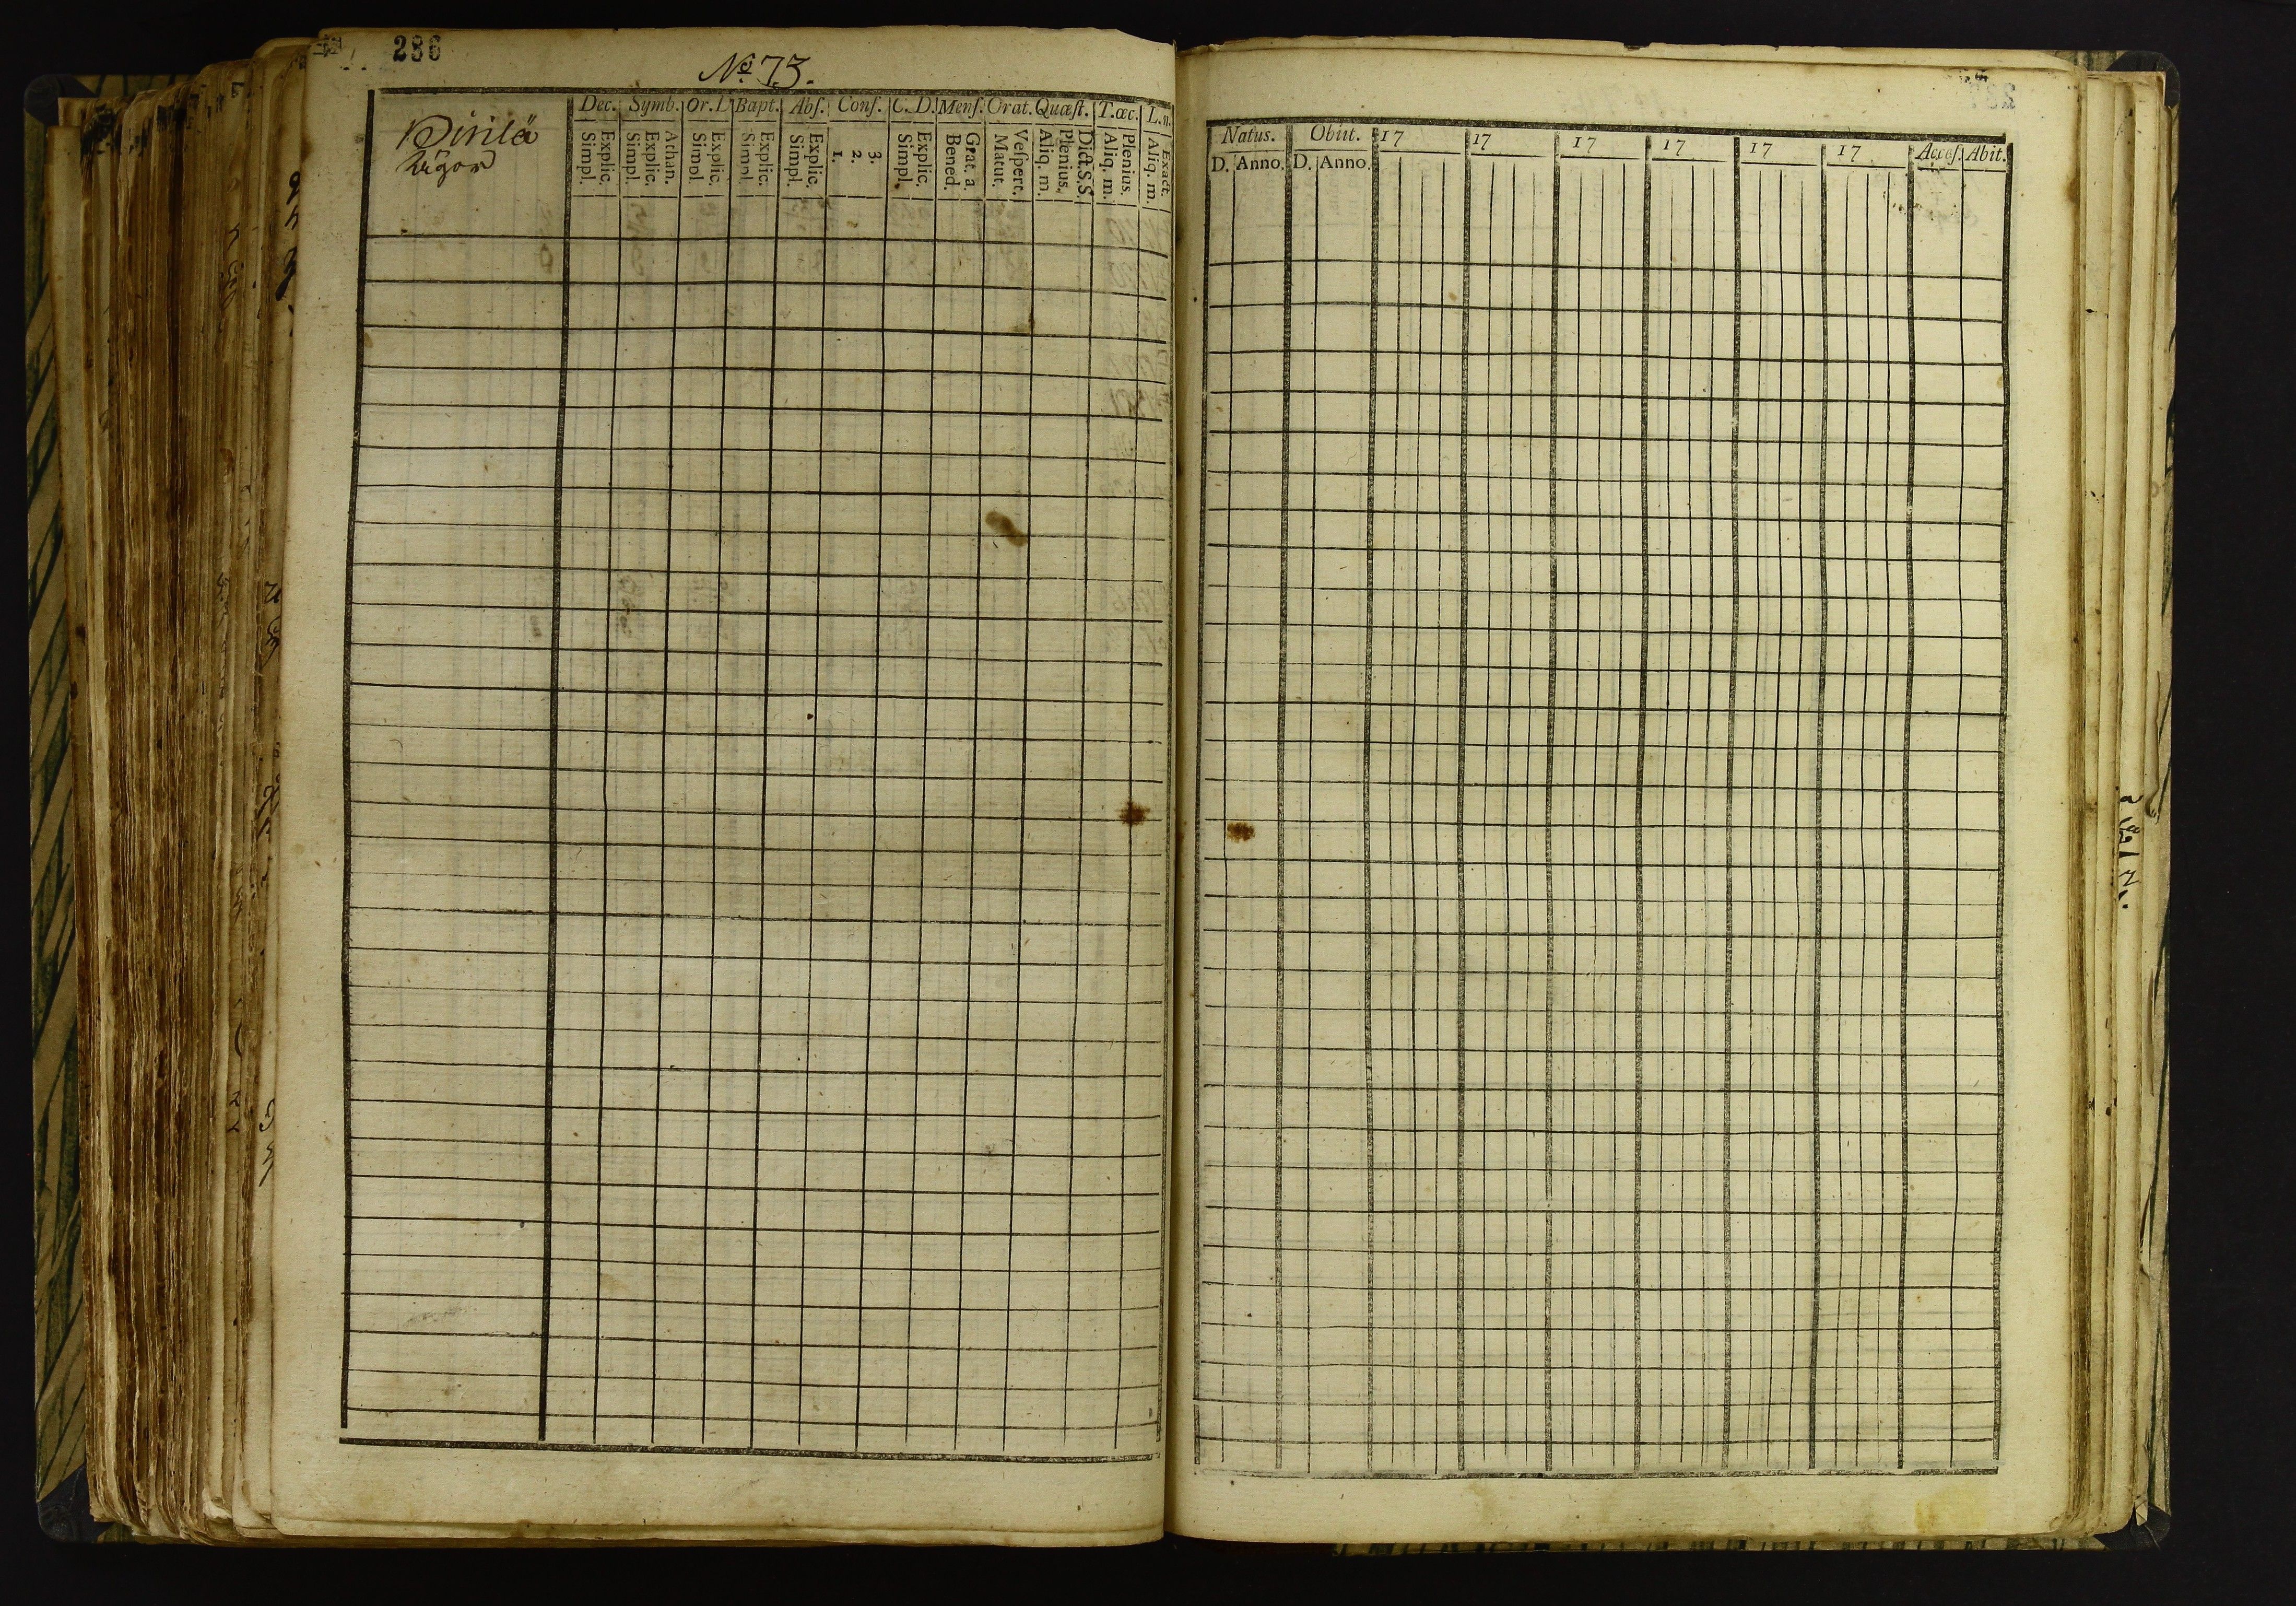 236
No 73.
Pirilä
Dec. Symb. Or. D Bapt. Abſ. Conf. C. D. Menſ. Orat. Quæſt. T. œc. L. n.
Simpl. Explic. Simpl. Explic. Athan. Simpl. Explic. Simpl. Explic. Simpl. Explic. 1. 2. 3. Simpl. Explic. Bened. Grat. a. Matut. Veſpert. Aliq. m. Plenius. Dict. S. S. Aliq. m. Plenius. Aliq. m. Exact.
Natus. Obiit. 17 17 17 17 17 17 Acceſ. Abit.
D. Anno. D. Anno.